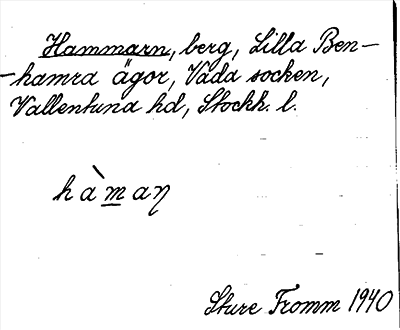 Hammarn, berg, Lilla Ben-
-hamra ägor, Vada socken,
Vallentuna hd, Stockh. l.
hàmaŋ
Sture Fromm 1940